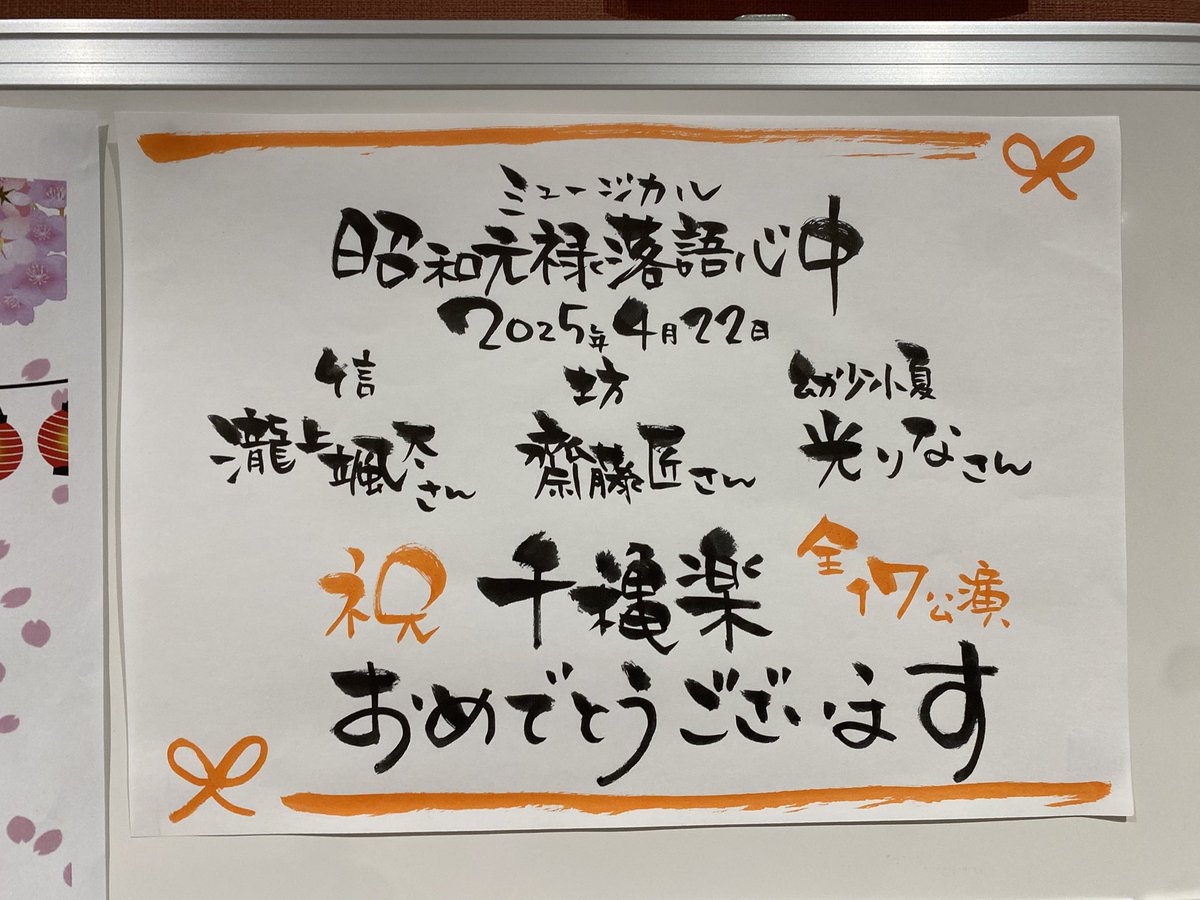 ミュージカル
昭和元禄落語心中
2025年4月22日
信 坊 幼少小夏
瀧上颯太さん 齋藤匠さん 光りなさん
祝 千穐楽 全17公演
おめでとうございます